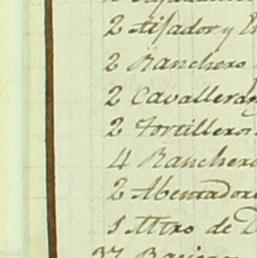 2 Afijador y
2 Ranchero
2 Cavalleran
2 Tortilleros
4 Ranchero
2 Abentadore
1 Mtro de D
37